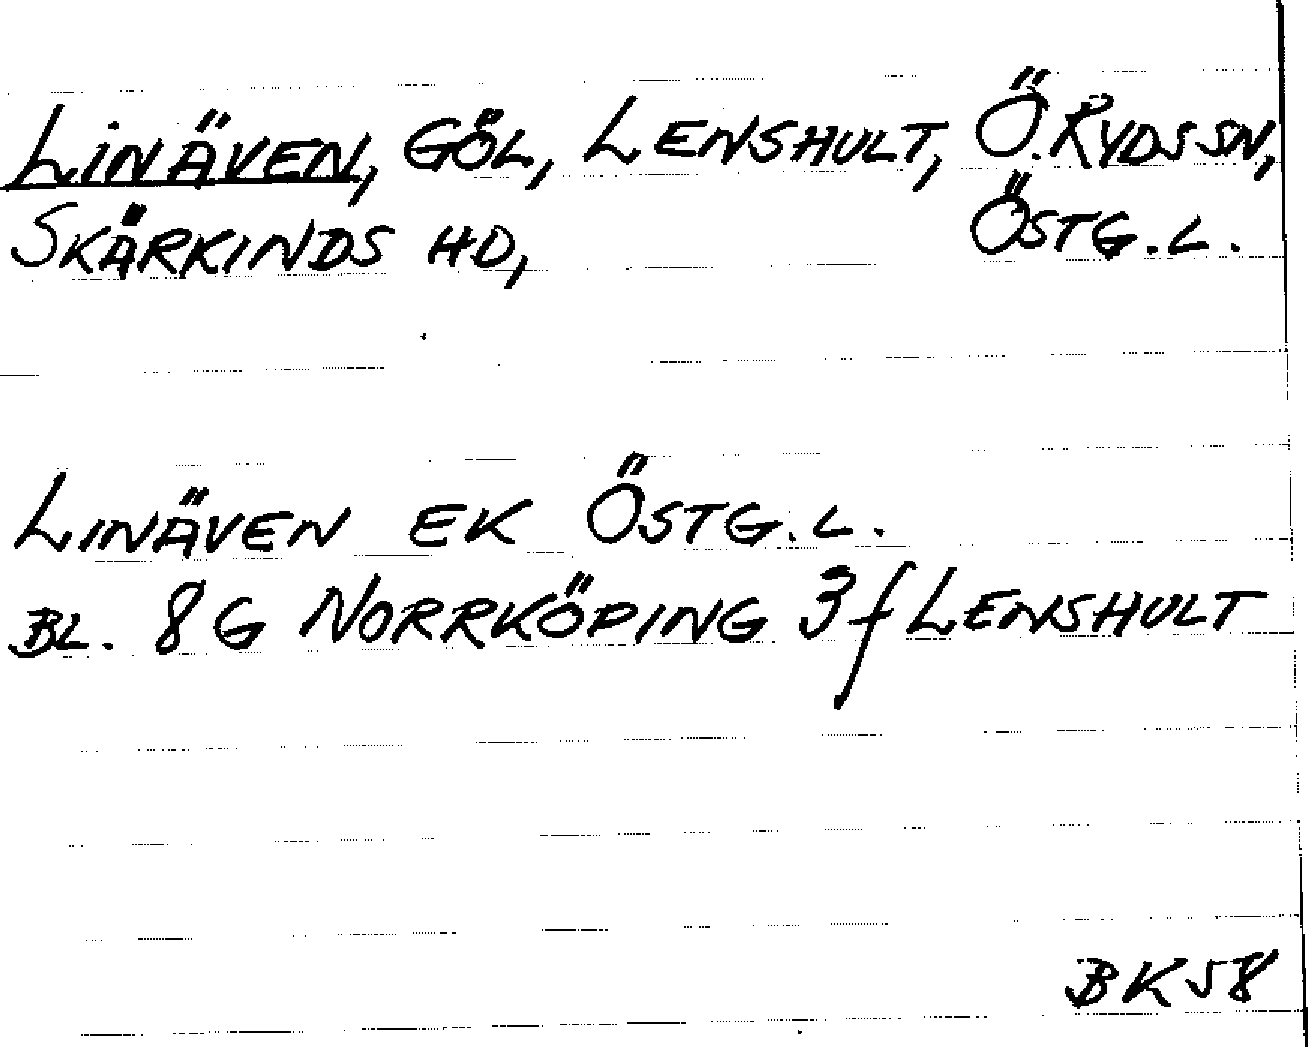 LINÄVEN, GÖL, LENSHULT, Ö. RYDS SN,
SKÄRKINDS HD, ÖSTG. L.
LINÄVEN EK ÖSTG. L.
BL. 8 G NORRKÖPING 3f LENSHULT
BK 58